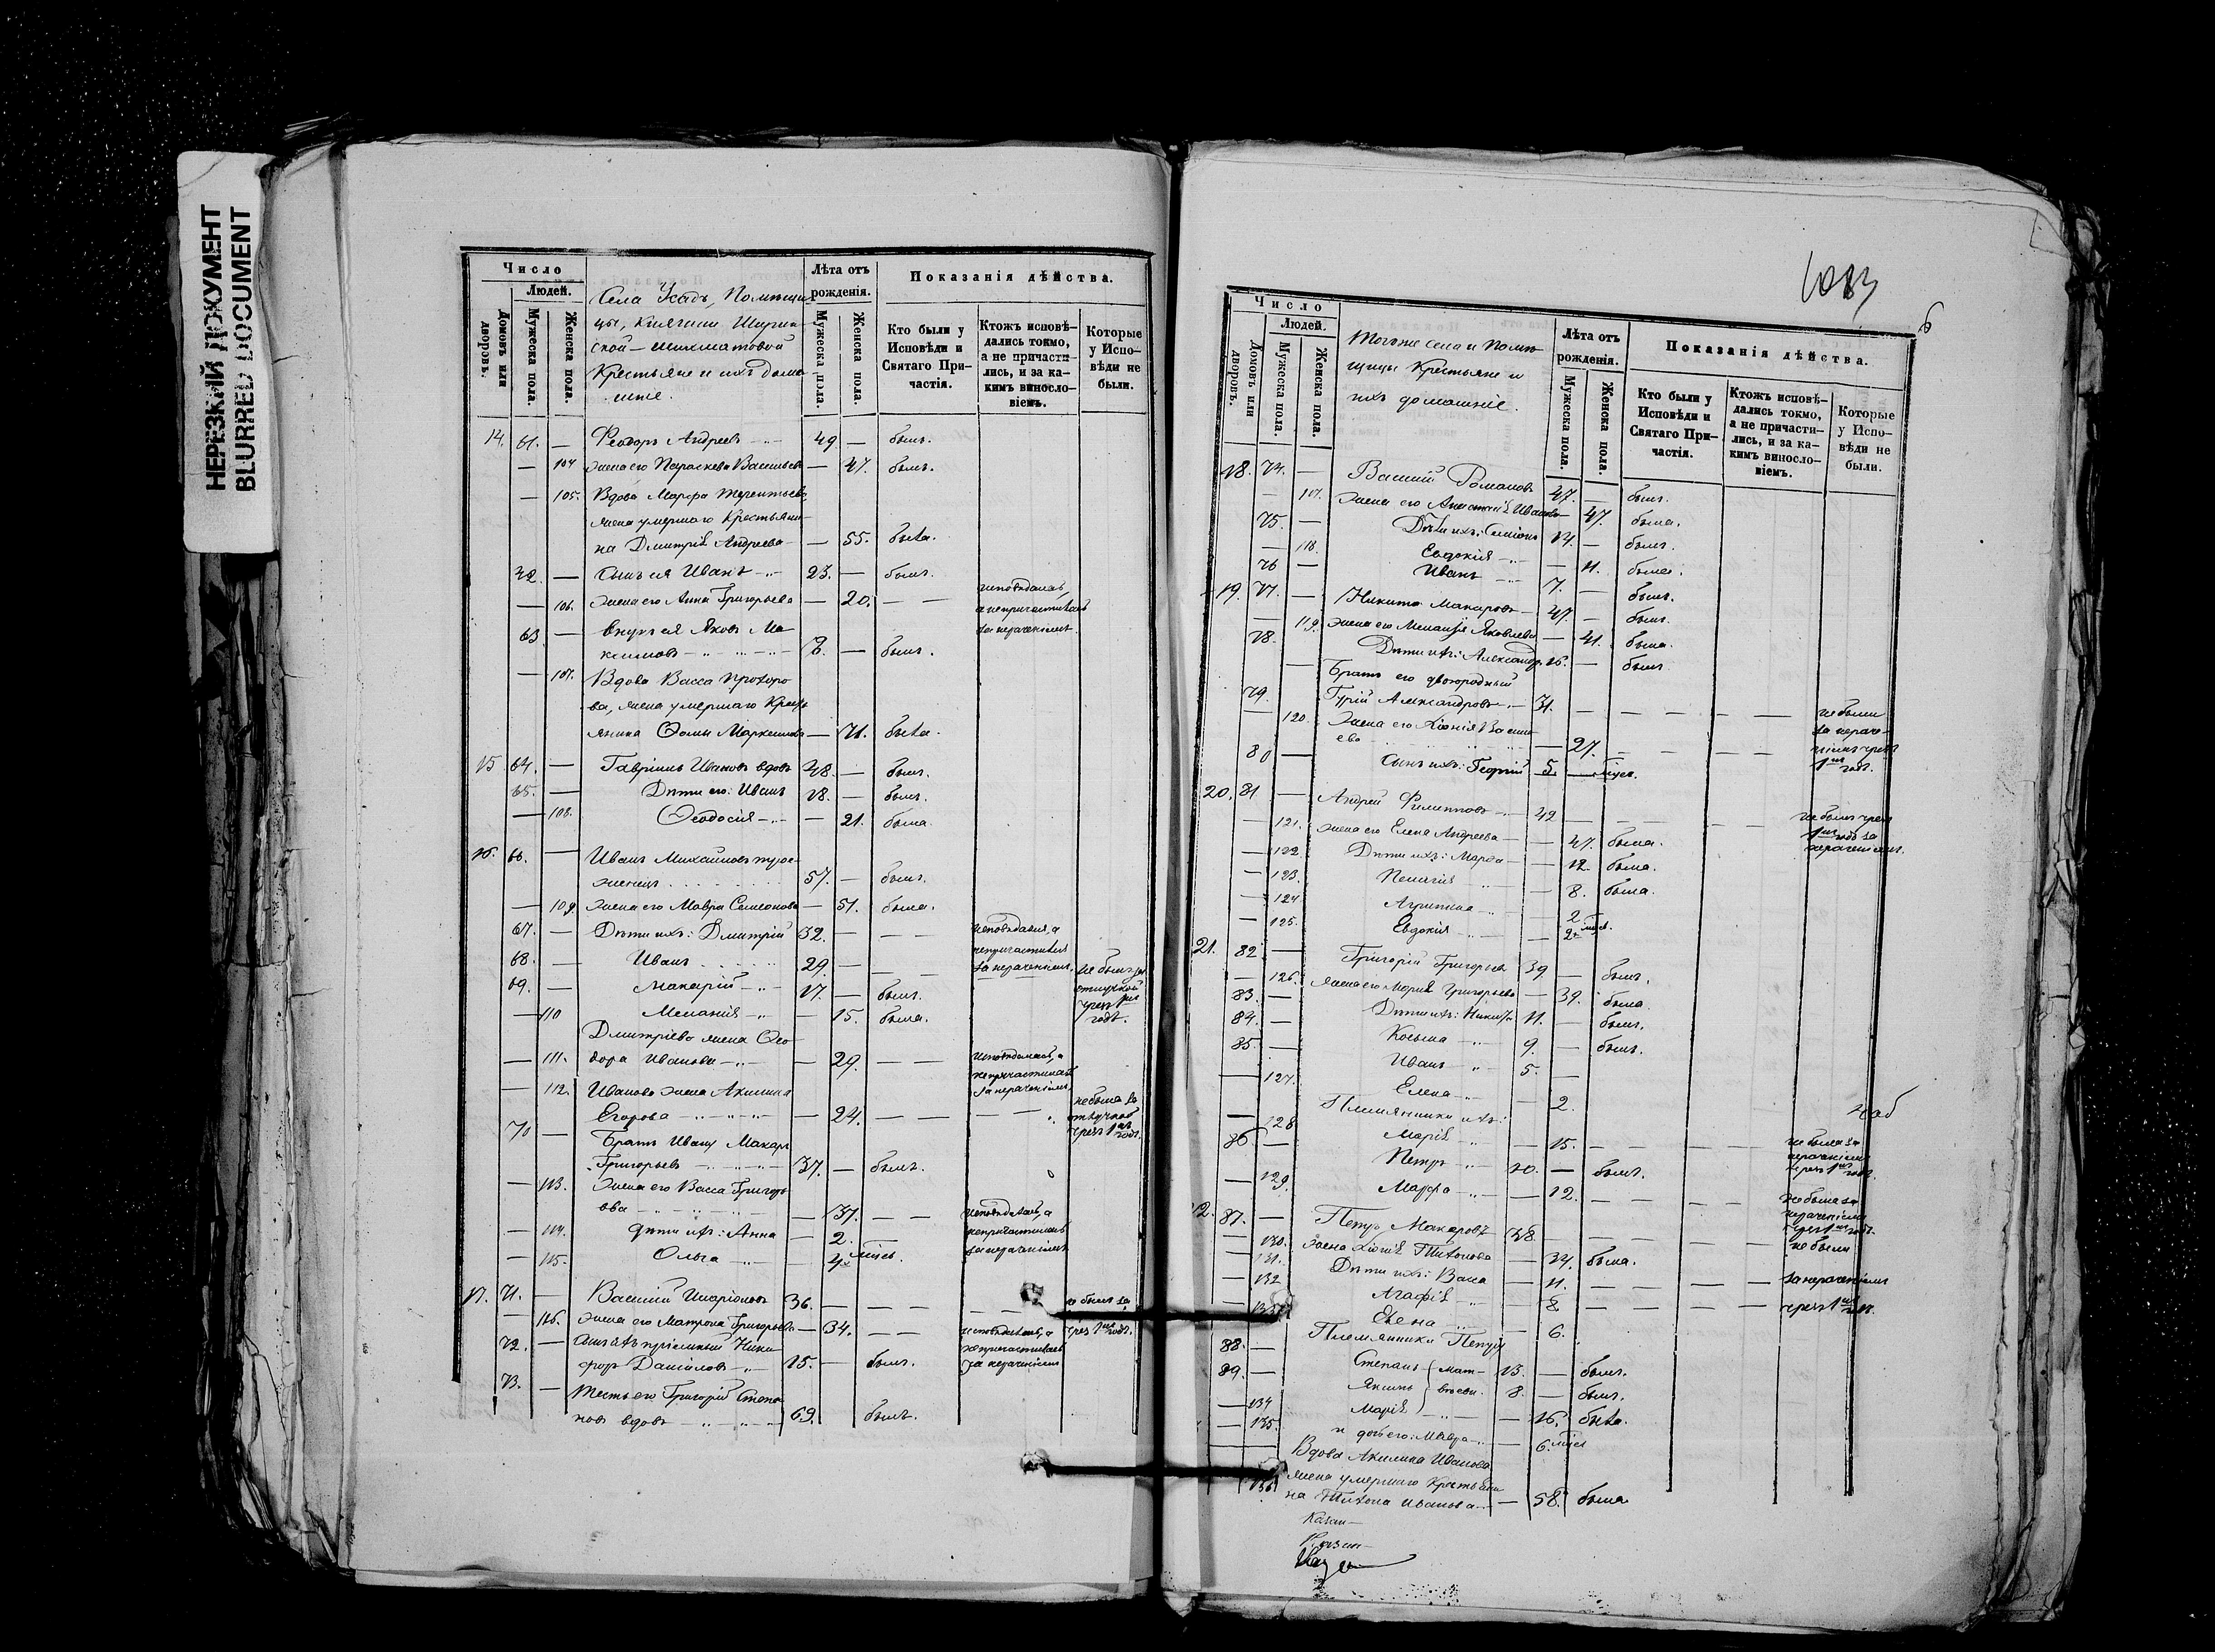 НЕРЕЗКИЙ ДОКУМЕНТ
BLURRED DOCUMENT
Число
Людей.
Домовъ или дворовъ.
Мужеска пола.
Женска пола.
Села Усадъ, Помѣщи-
цы, Княгини
Крестьяне и ихъ дома-
шніе.
Лѣта отъ рожденія.
Мужеска пола.
Женска пола.
Показанія дѣйства.
Кто были у Исповѣди и Святаго При-частія.
Ктожъ исповѣ-дались токмо, а не причасти-лись, и за ка-кимъ винosло-віемъ.
Которые у Испо-вѣди не были.
14. 61. — Ѳеодоръ Андреевъ 49 — былъ.
— 104 жена его Параскева Васильева — 47. была.
— 105. Вдова Марѳа Терентьева,
жена умершаго Крестьяни-
на Дмитрія Андреева — 55. была.
62. — Сынъ ея Иванъ 23. — былъ.
— 106. Жена его Анна Григорьева — 20. — — исповѣдалась, а непричастилась за нераченіемъ.
63 — Внукъ ея Яковъ Ма-
ксимовъ 8. — былъ.
— 107. Вдова Васса Прохоро-
ва, жена умершаго Кресть-
янина Ѳомы — 71. была.
15 64. — Гавріилъ Ивановъ вдовъ 48. — былъ.
65. — Дѣти его: Иванъ 18. — былъ.
— 108. Ѳеодосія — 21. была
16. 66. — Иванъ Михайловъ
женецъ 57. — былъ.
— 109. Жена его Мавра Семеонова — 51. была.
67. — Дѣти ихъ: Дмитрій 32. — — исповѣдался, а непричастился за нераченіемъ.
68. — Иванъ 29. — — — не былъ за отлучкой чрезъ 1ый годъ.
69. — Макарій 17. — былъ.
— 110 Меланія — 15. была.
Дмитріева жена Ѳео-
— 111. дора Иванова — 29. — — исповѣдалась, а непричастилась за нераченіемъ.
— 112. Иванова жена Акилина
Егорова — 24. — — — не была за отлучкой чрезъ 1ый годъ.
70 — Братъ Ивану Макаръ
Григорьевъ 37. — былъ.
— 113. Жена его Васса Григорь-
ева — 37. — — исповѣдалась, а непричастилась за нераченіемъ
— 114. дѣти ихъ: Анна — 2.
— 115. Ольга — 4 мѣсе.
17. 71. — Василій Иларіоновъ 36. — — — — не былъ за чрезъ 1ый годъ.
— 116. Жена его Матрона Григорьева — 34. — — исповѣдалась, а непричастилась за нераченіемъ
72. — Сынъ ихъ пріемный Ники-
форъ Даниловъ 15. — былъ.
73. — Тесть его Григорій Степа-
новъ вдовъ 69. былъ.
6
Число
Людей.
Домовъ или дворовъ.
Мужеска пола.
Женска пола.
Тогоже села и Помѣ-
щицы Крестьяне и
ихъ домашніе.
Лѣта отъ рожденія.
Мужеска пола.
Женска пола.
Показанія дѣйства.
Кто были у Исповѣди и Святаго При-частія.
Ктожъ исповѣ-дались токмо, а не причасти-лись, и за ка-кимъ винosло-віемъ.
Которые у Испо-вѣди не были.
18. 74. — Василій Романовъ 47. — былъ.
— 117. Жена его Анастасія Иванова — 47. была.
75. — Дѣти ихъ: Симеонъ 14. — былъ.
— 118. Евдокія — 11. была.
76 — Иванъ 7. — былъ.
19. 77. — Никита Макаровъ 47. — былъ.
— 119. Жена его Меланія Яковлева — 41. была.
78. — Дѣти ихъ: Александръ 16. — былъ.
Братъ его двоюродный
79. — Гурій Александровъ 31. — — — — не были за нераче-ніемъ чрезъ 1ый годъ.
— 120. Жена его Хіонія Василь-
ева — 27. — — —
80 — Сынъ ихъ: Георгій 5. — мѣсе.
20. 81. — Андрей Филипповъ 42 — — — не былъ чрезъ 1ый годъ за нераченіемъ.
— 121. Жена его Елена Андреева — 47. была.
— 122. Дѣти ихъ: Марѳа — 12. была.
— 123. Пелагія — 8. была.
— 124. Агрипина — 2
— 125. Евдокія — 2 мѣсе.
21. 82. — Григорій Григорьевъ 39 — былъ.
— 126. Жена его Марія Григорьева — 39. была
83. — Дѣти ихъ: Никита 11. — былъ.
84. — Косьма 9. — былъ.
85. — Иванъ 5. —
— 127. Елена — 2.
Племянники ихъ:
— 128 Марія — 15. — — — не была за нераченіемъ чрезъ 1ый годъ.
86. — Петръ 10. — былъ.
— 129. Марѳа — 12. — — — не была за нераченіемъ чрезъ 1ый годъ.
87. — Петръ Макаровъ 38. — — — — не былъ за нераченіемъ чрезъ 1ый годъ.
— 130. Жена Хіонія Тихонова — 34. была.
— 131. Дѣти ихъ: Васса — 11. — — —
— 132 Агафія — 8. — — —
— 133 Елена — 6.
Племянники Петру
88. — Степанъ 13. — былъ.
89. — 8. — былъ.
— 134 Марія — 16. была.
— 135. и дочь его: Мавра — 6. мѣсе
Вдова Акилина Иванова
жена умершаго Крестьяни-
136 на Тихона Иванова — 58. была